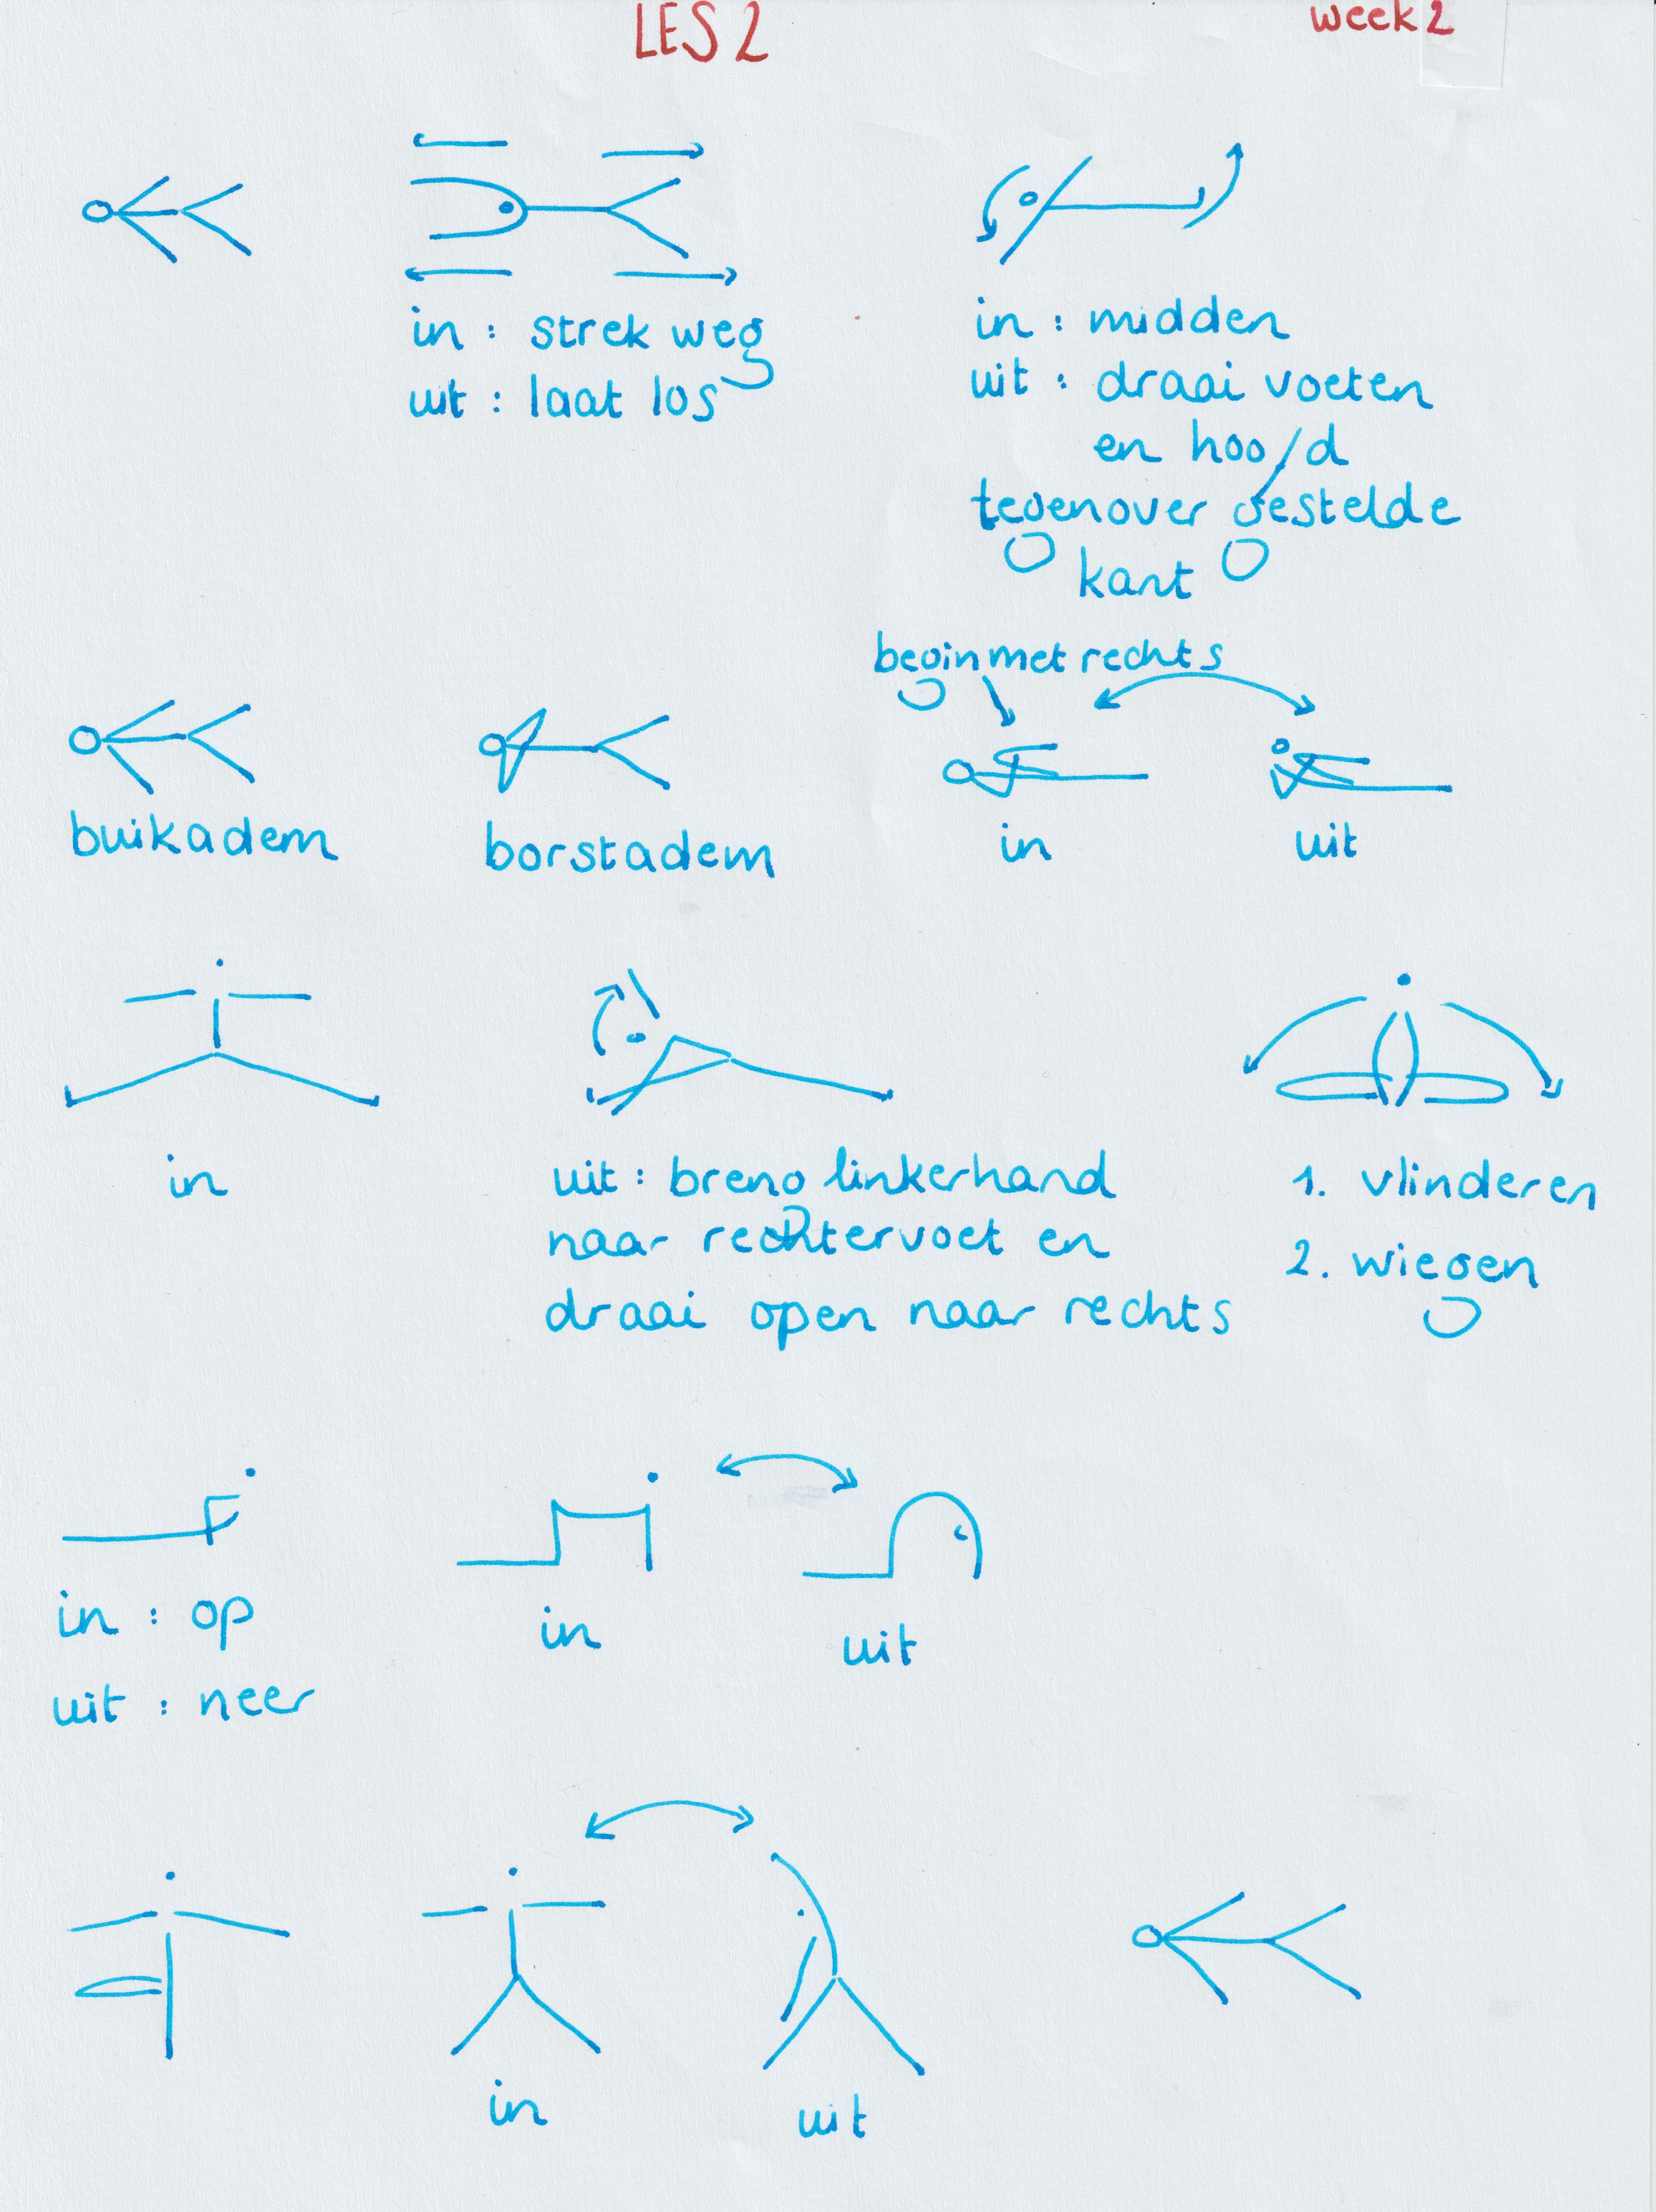 LES 2
week 2
in : strek weg
uit : laat los
in : midden
uit : draai voeten
en hoofd
tegenover gestelde
kant
begin met rechts
buikadem
borstadem
in
uit
in
uit : breng linkerhand
naar rechtervoet en
draai open naar rechts
1. vlinderen
2. wiegen
in : op
uit : neer
in
uit
in
uit